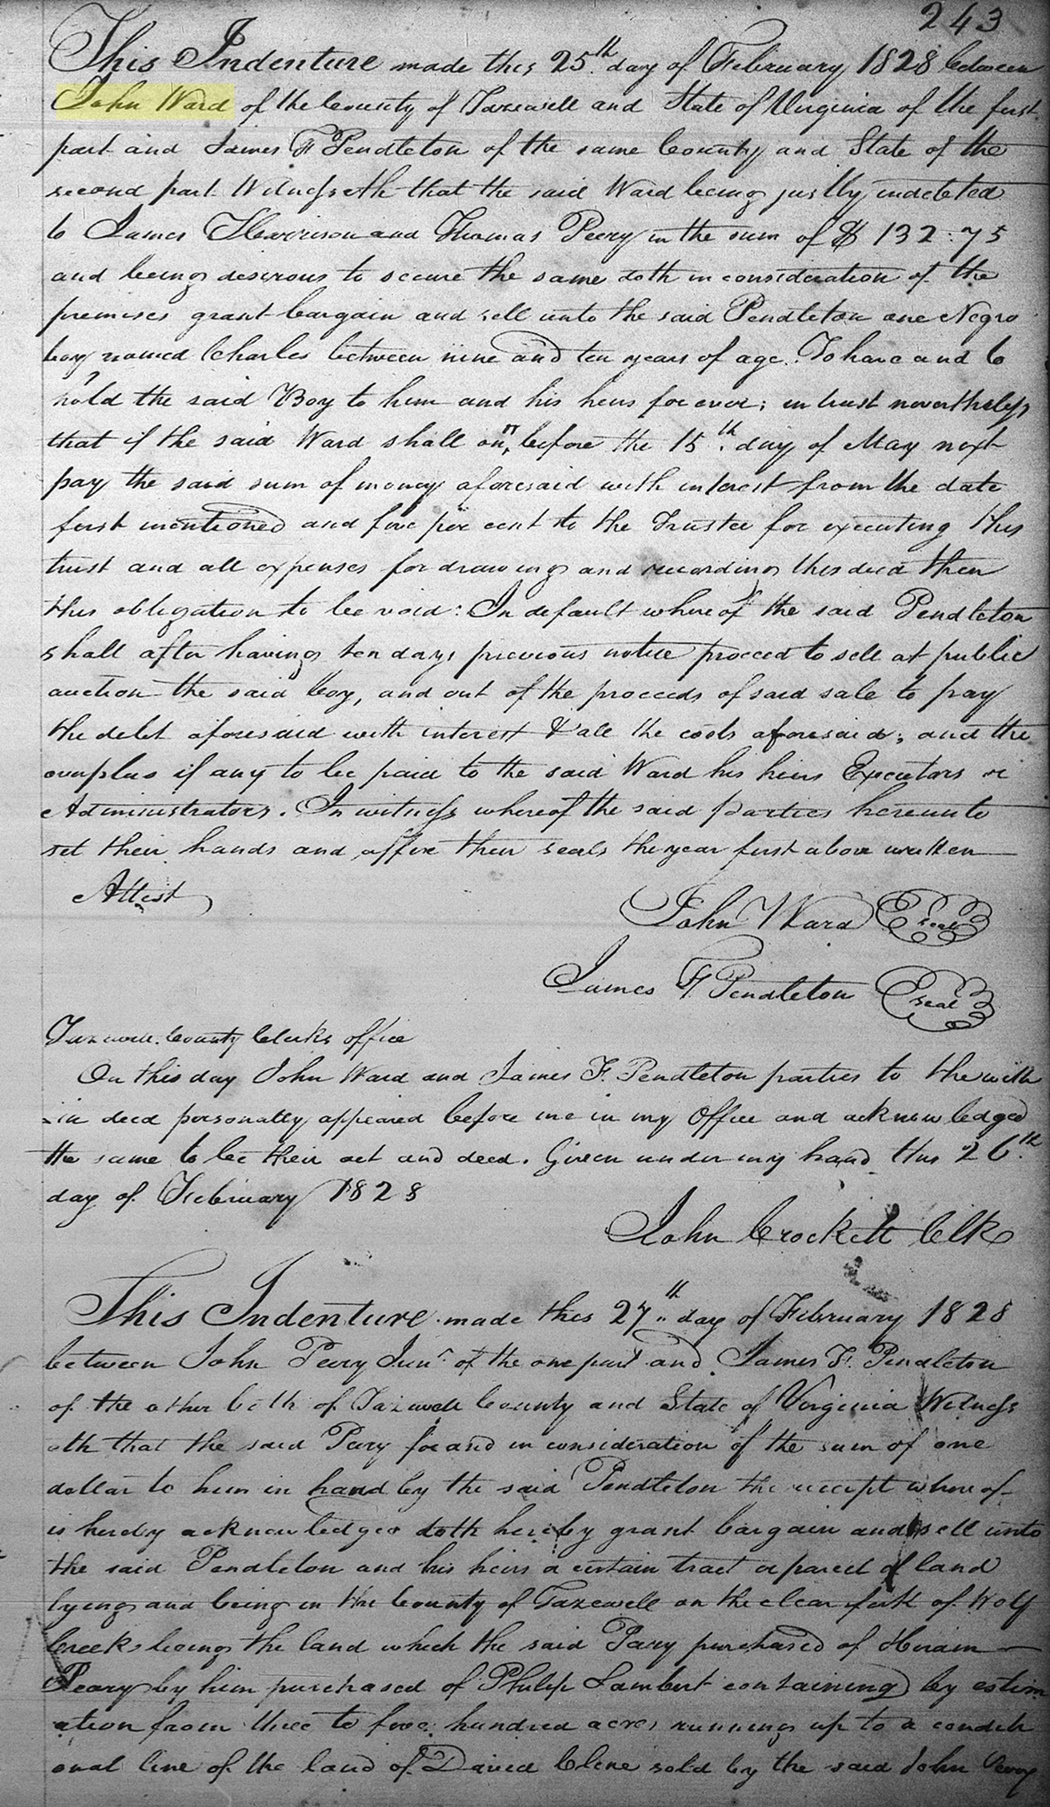 243
This Indenture made this 25th day of February 1828 between
John Ward of the County of Tazewell and State of Virginia of the first
part and James F Pendleton of the same County and State of the
second part Witnesseth that the said Ward being justly indebted
to James Harrison and Thomas Peery in the sum of $ 132.75
and being desirous to secure the same doth in consideration of the
premises grant bargain and sell unto the said Pendleton one Negro
boy named Charles between nine and ten years of age. To have and to
hold the said Boy to him and his heirs forever; in trust nevertheless
that if the said Ward shall on or before the 15th day of May next
pay the said sum of money aforesaid with interest from the date
first mentioned and five per cent to the Trustee for executing this
trust and all expenses for drawing and recording this deed then
this obligation to be void: In default whereof the said Pendleton
shall after having ten days previous notice proceed to sell at public
auction the said boy, and out of the proceeds of said sale to pay
the debt aforesaid with interest & all the costs aforesaid; and the
overplus if any to be paid to the said Ward his heirs Executors or
Administrators. In witness whereof the said parties hereunto
set their hands and affix their seals the year first above written
Attest
John Ward seal
James F Pendleton seal
Tazewell County Clerks office
On this day John Ward and James F. Pendleton parties to the with
in deed personally appeared before me in my Office and acknowledged
the same to be their act and deed. Given under my hand this 26th
day of February 1828
John Crockett Clk
This Indenture made this 27th day of February 1828
between John Peery Junr of the one part and James F. Pendleton
of the other both of Tazewell County and State of Virginia Witness
eth that the said Peery for and in consideration of the sum of one
dollar to him in hand by the said Pendleton the receipt whereof
is hereby acknowledged doth hereby grant bargain and sell unto
the said Pendleton and his heirs a certain tract or parcel of land
lying and being in the County of Tazewell on the clear fork of Wolf
Creek being the land which the said Peery purchased of Hiram
Peery by him purchased of Philip Lambert containing by estim
ation from three to five hundred acres running up to a condit
onal line of the land of David Cline sold by the said John Peery